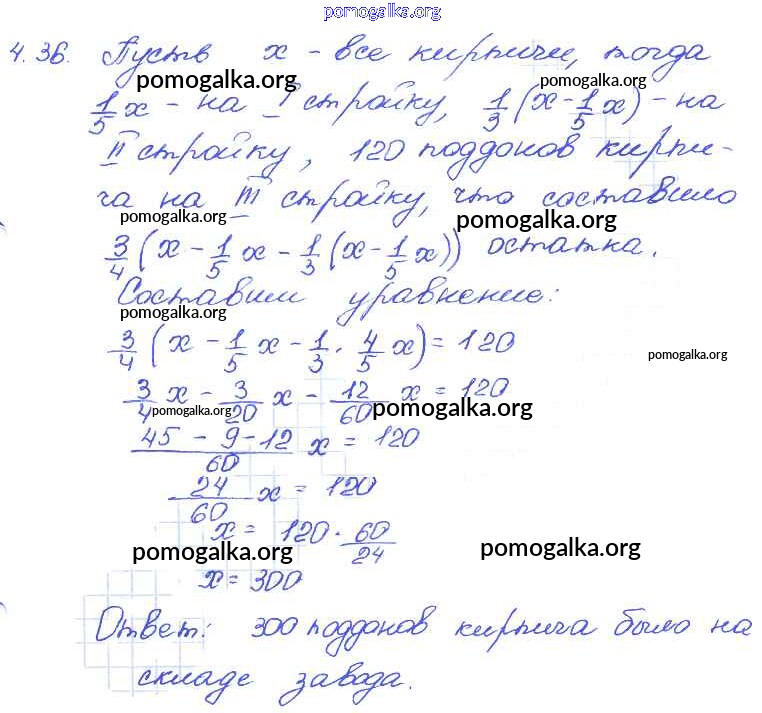 pomogalka.org
4.36. Пусть x - все кирпичи, тогда
pomogalka.org pomogalka.org
1/5 x - на I стройку, 1/3 (x - 1/5 x) - на
II стройку, 120 поддонов кирпи-
ча на III стройку, что составило
pomogalka.org pomogalka.org
3/4 (x - 1/5 x - 1/3 (x - 1/5 x)) остатка.
Составим уравнение:
pomogalka.org
3/4 (x - 1/5 x - 1/3 · 4/5 x) = 120
pomogalka.org
3/4 x - 3/20 x - 12/60 x = 120
pomogalka.org pomogalka.org
45 - 9 - 12/60 x = 120
24/60 x = 120
x = 120 · 60/24
pomogalka.org pomogalka.org
x = 300
Ответ: 300 поддонов кирпича было на
складе завода.